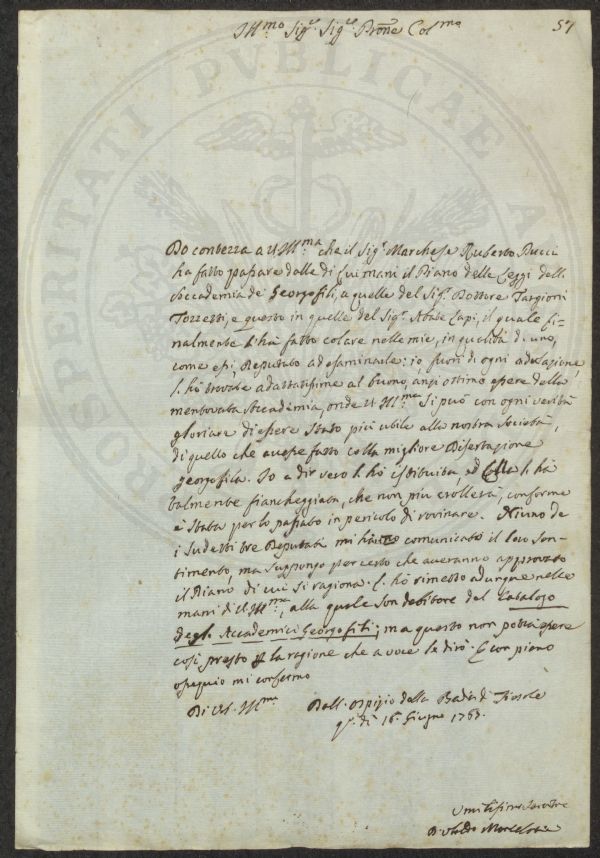 Ill.mo Sig.r Sig.r Prōne Col.mo
57
PROSPERITATI PVBLICAE
Do contezza a V.S. Ill.ma che il Sig.r Marchese Ruberto Pucci
ha fatto passare dalle di lui mani il Piano delle Leggi dell'
Accademia de' Georgofili, a quelle del Sig.r Dottore Targioni
Tozzetti, e questo in quelle del Sig.r Abate Lapi, il quale fi=
nalmente l'ha fatto colare nelle mie, in qualità di uno,
come essi, Deputato ad esaminarle: io fuori di ogni adulazione,
l'ho trovate adattatissime al buono, anzi ottimo essere della
mentovata Accademia, onde V.S. Ill.ma si può con ogni verità
gloriare di essere stato più utile alla nostra Società,
di quello che avesse fatto colla migliore Disertazione
georgofila. Io a dir vero l'ho istituita, ed Ella l'ha
talmente fiancheggiata, che non più crollerà, conforme
è stata per lo passato in pericolo di rovinare. Niuno de
i sudetti tre Deputati mi ha comunicato il loro sen-
timento, ma suppongo per certo che averanno approvato
il Piano di cui si ragiona. L'ho rimesso adunque nelle
mani di V.S. Ill.ma, alla quale son debitore del Catalogo
degl' Accademici Georgofili; ma questo non potrà essere
così presto la ragione che a voce le dirò. E con pieno
ossequio mi confermo
Di V.S. Ill.ma
Dall'Ospizio della Badia di Fiesole
q.o dì 16. Giugno 1767.
Umilissimo Servitore
D. Ubaldo Montelatici